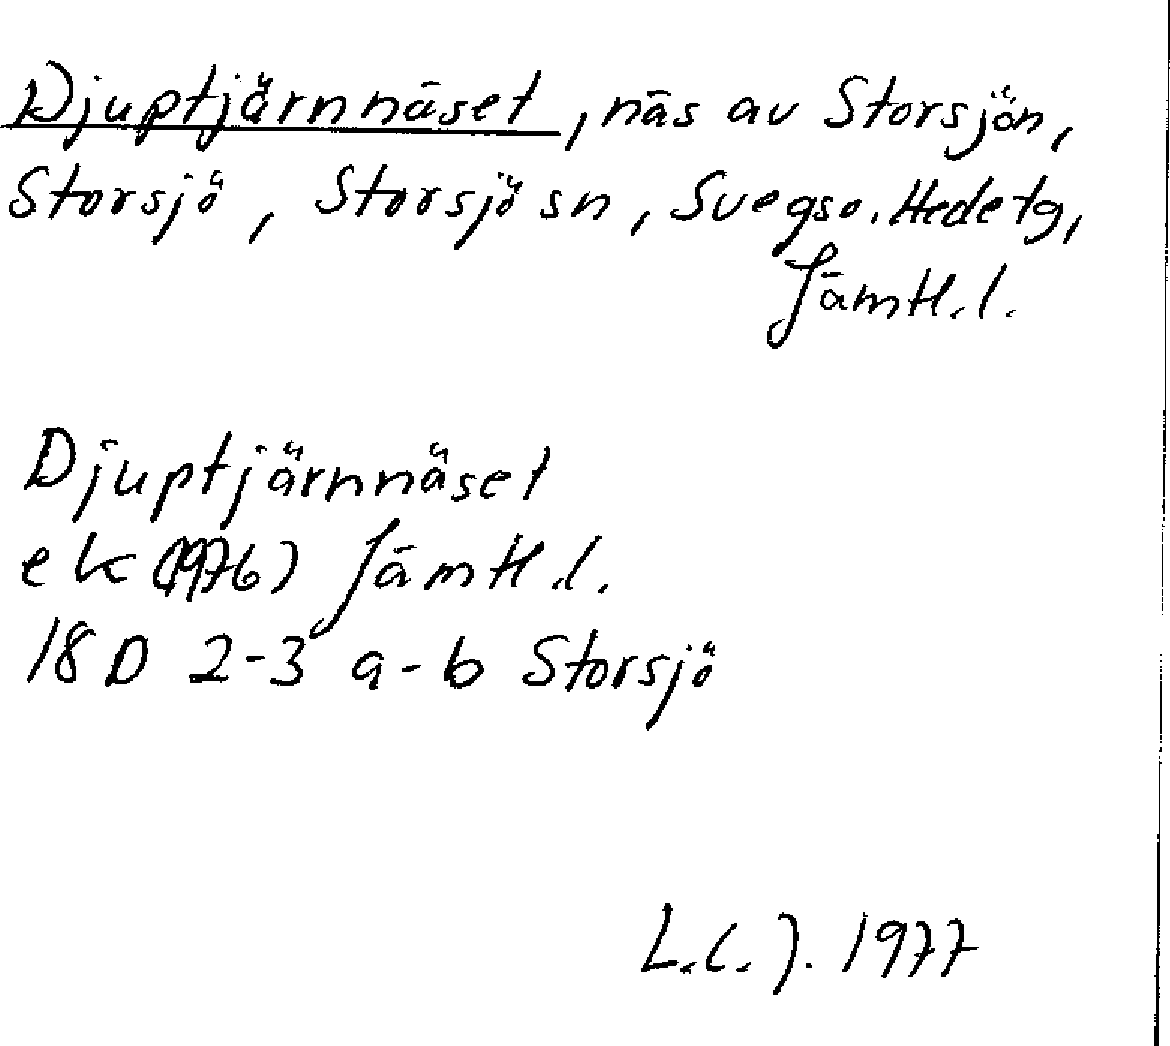 Djuptjärnnäset, näs av Storsjön,
Storsjö, Storsjö sn, Svegs o. Hede tg,
Jämtl. l.
Djuptjärnnäset
ek (1976) Jämtl. l.
18D 2-3 a-b Storsjö
L.C.J. 1977